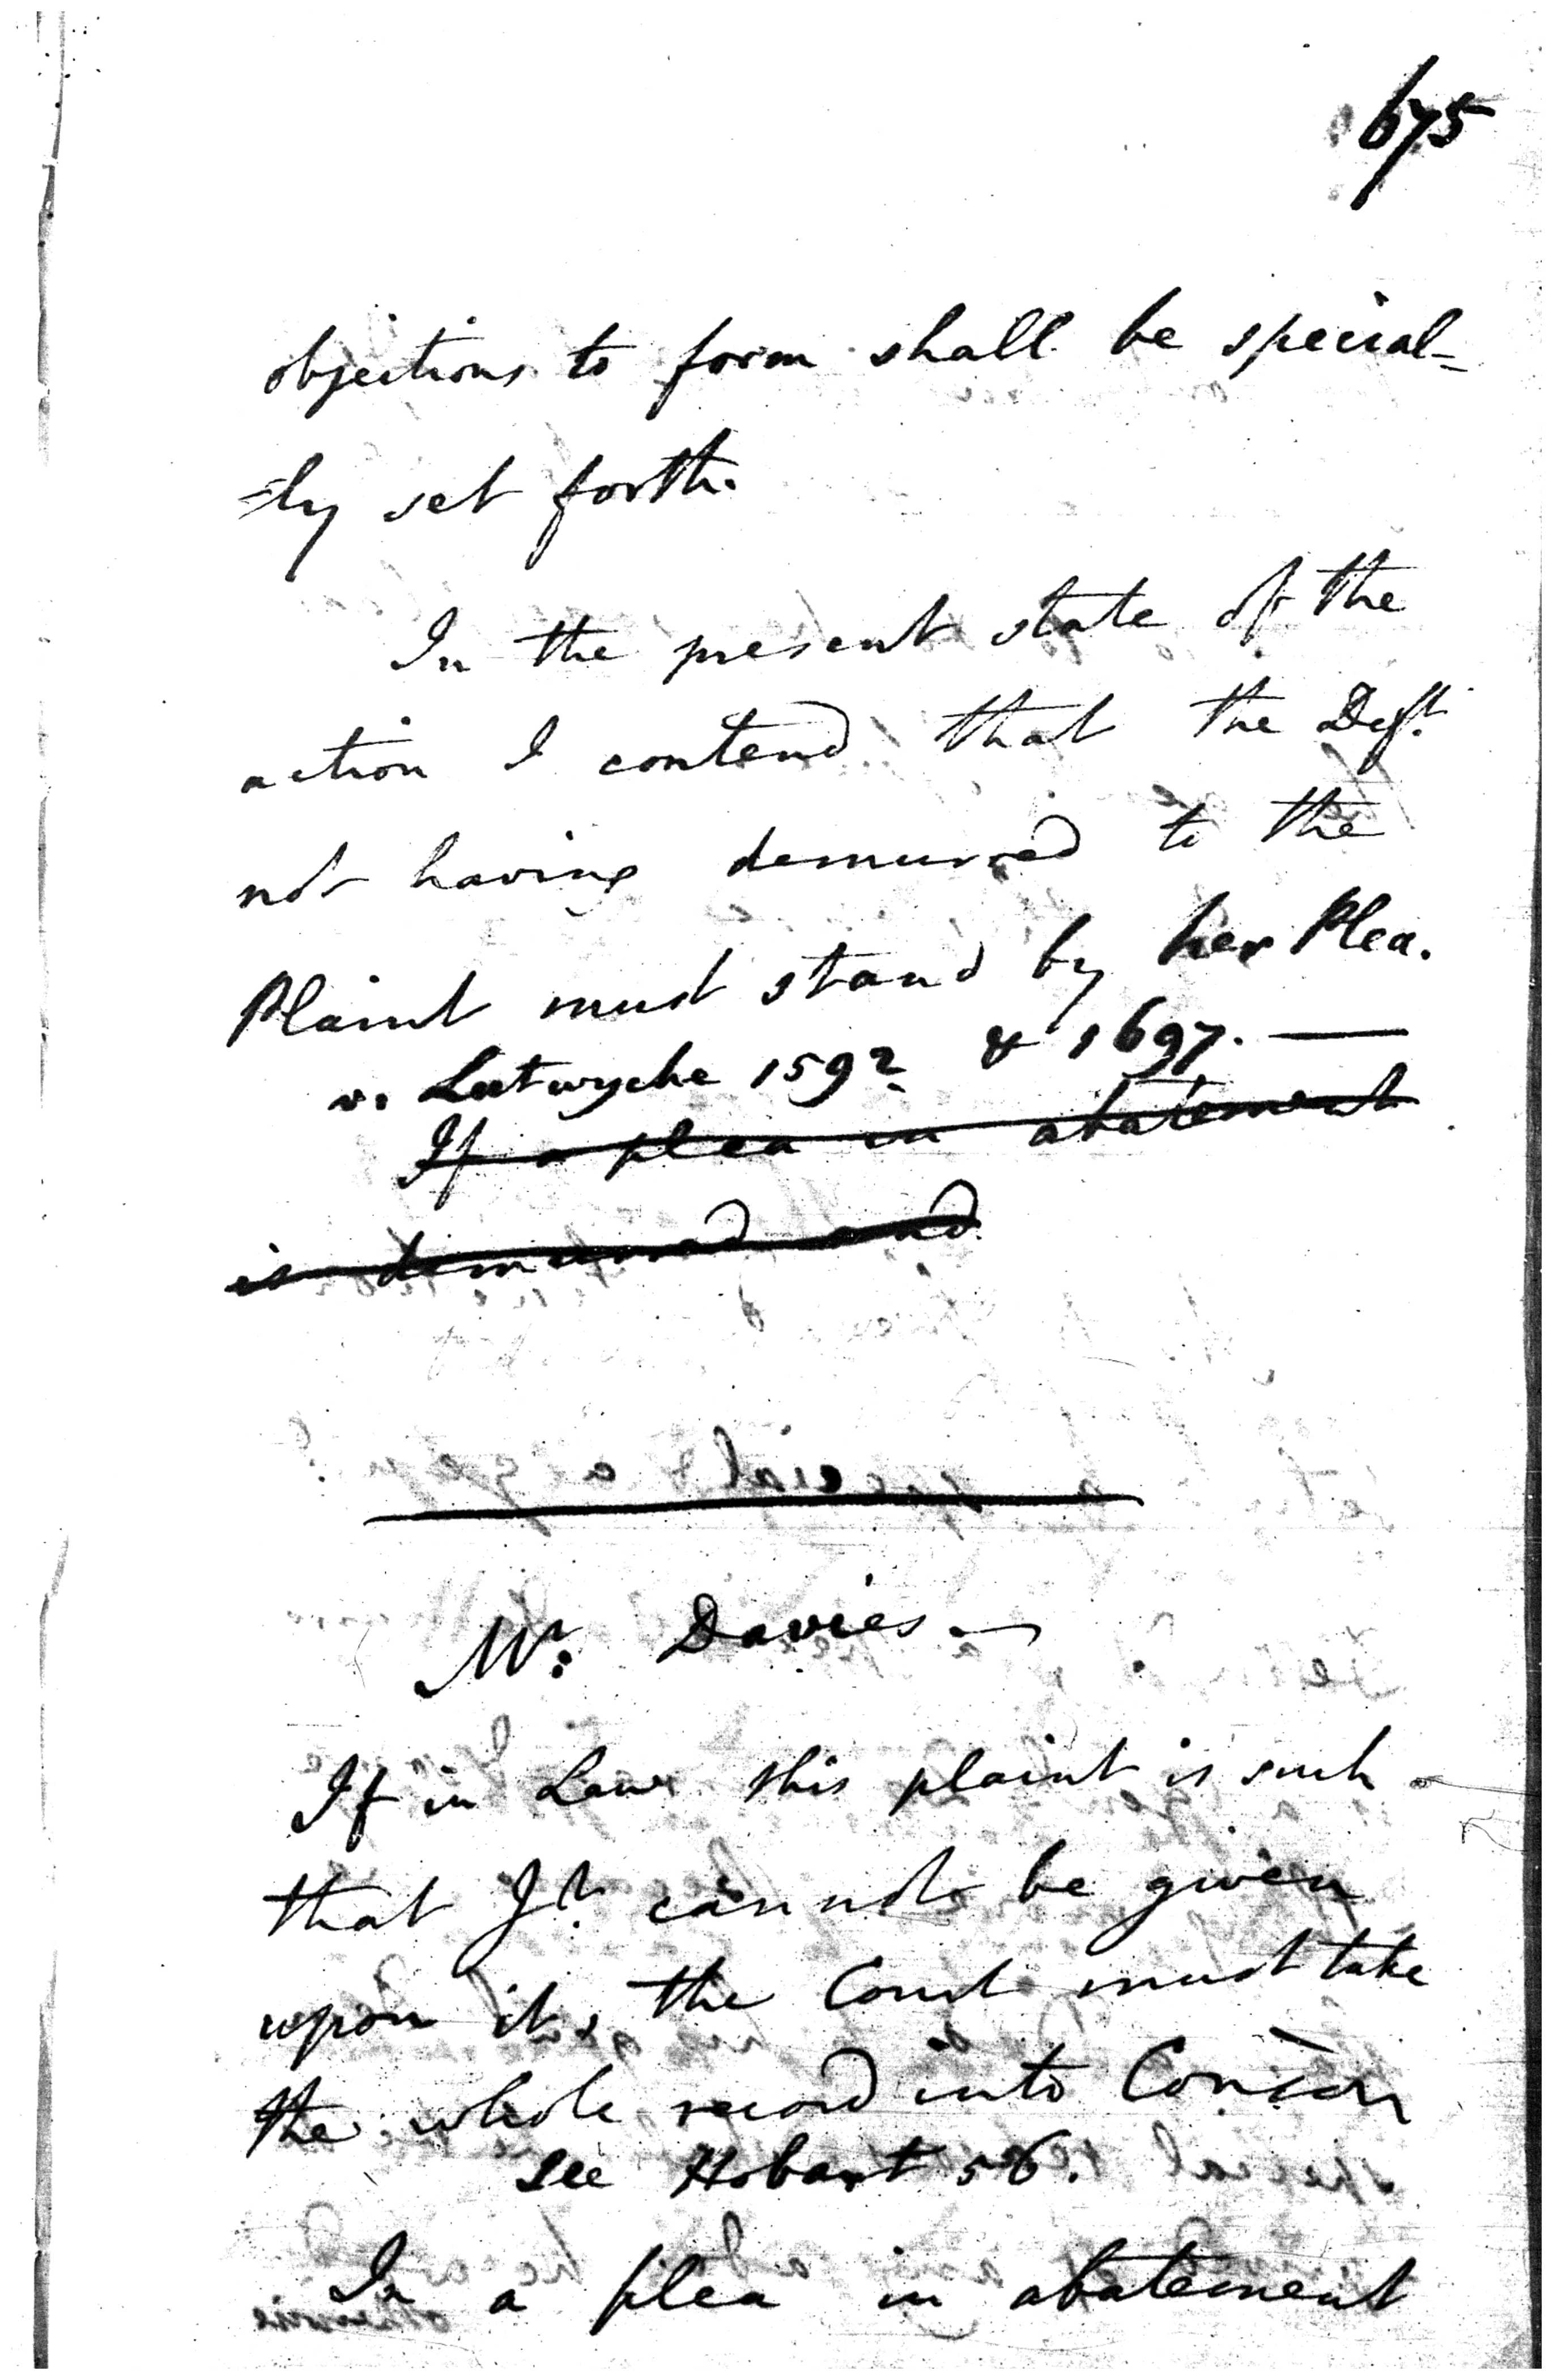 675
objections to form shall be special-
=ly set forth.
In the present state of the
action I contend that the Deft
not having demurred to the
Plaint must stand by her Plea.
v. Lutwyche 1592 & 1697. —
If a plea in abatement
is demurred and
Mr. Davies —
If in Law this plaint is such
that Jt. cannot be given
upon it, the Court must take
the whole record into Concon
see Hobart 56.
In a plea in abatement